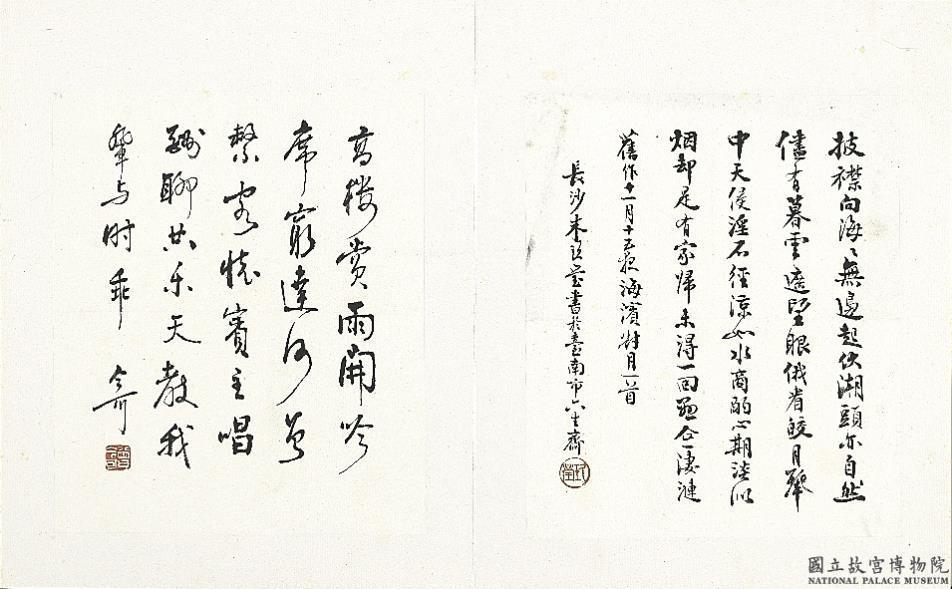 披襟向海海無邊起伏潮頭亦自然
儘有暮雲遮望眼俄看皎月舉
中天侵淫石徑涼如水商酌心期淡似
烟却是有家歸未得一回圓合一淒漣
舊作十一月十五夜海濱對月一首
長沙朱玖瑩書於臺南市六半齋
高樓賞雨開吟
席窮達何曾
繫客懷賓主唱
酬聊共樂天教我
輩与时乖
國立故宮博物院
NATIONAL PALACE MUSEUM